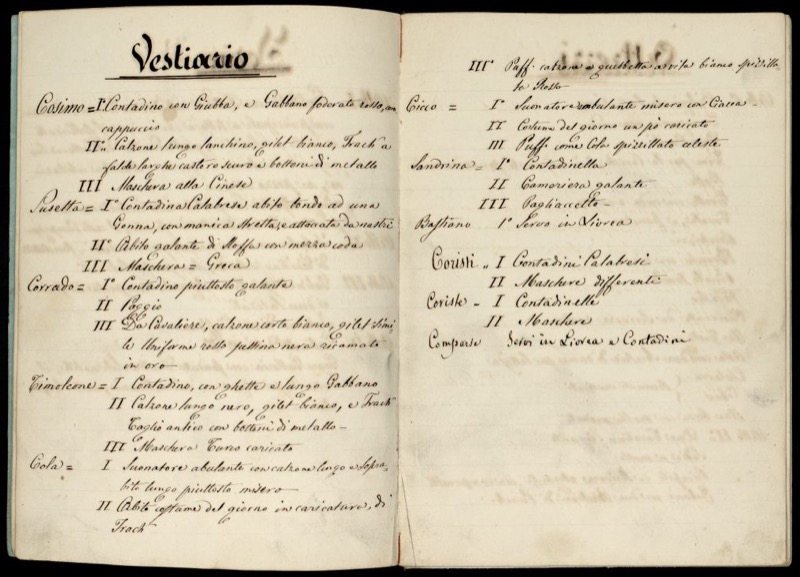 Vestiario
Cosimo = I° Contadino con Giubba, e Gabbano foderato rosso, con
cappuccio
II° Calzone lungo lanchino, gilet bianco, Frack a
falde larghe castoro scuro e bottoni di metallo
III Maschera alla Cinese
Susetta = I° Contadina Calabrese abito tondo ad una
Gonna, con manica stretta, e attaccata da nastri
II° Abito galante di stoffa con mezza coda
III Maschera = Greca
Corrado = I° Contadino piuttosto galante
II Paggio
III Da Cavaliere, calzone corto bianco, gilet simi-
le Uniforme rosso pettina nera ricamata
in oro
Timoleone = I Contadino, con ghette e lungo Gabbano
II Calzone lungo nero, gilet bianco, e Frack
Taglio antico con bottoni di metallo
III Maschera Turco caricato
Cola = I. Suonatore abulante con calzone lungo e sopra-
bito lungo piuttosto misero
II. Abito costume del giorno in caricatura, di
Frack
III° Puff. calzone a guelbetta a vita bianco spizilla-
to Rosso
Cicco = I° Suonatore abulante misero con Giacca
II Costume del giorno un pò caricato
III Puff come Cola spizillato celeste
Sandrina = I° Contadinella
II Cameriera galante
III Pagliaccetto
Bastiano I° Servo in Livrea
Coristi „ I Contadini Calabresi
II Maschere differenti
Coriste - I Contadinelle
II Maschere
Comparse Servi in Livrea e Contadini